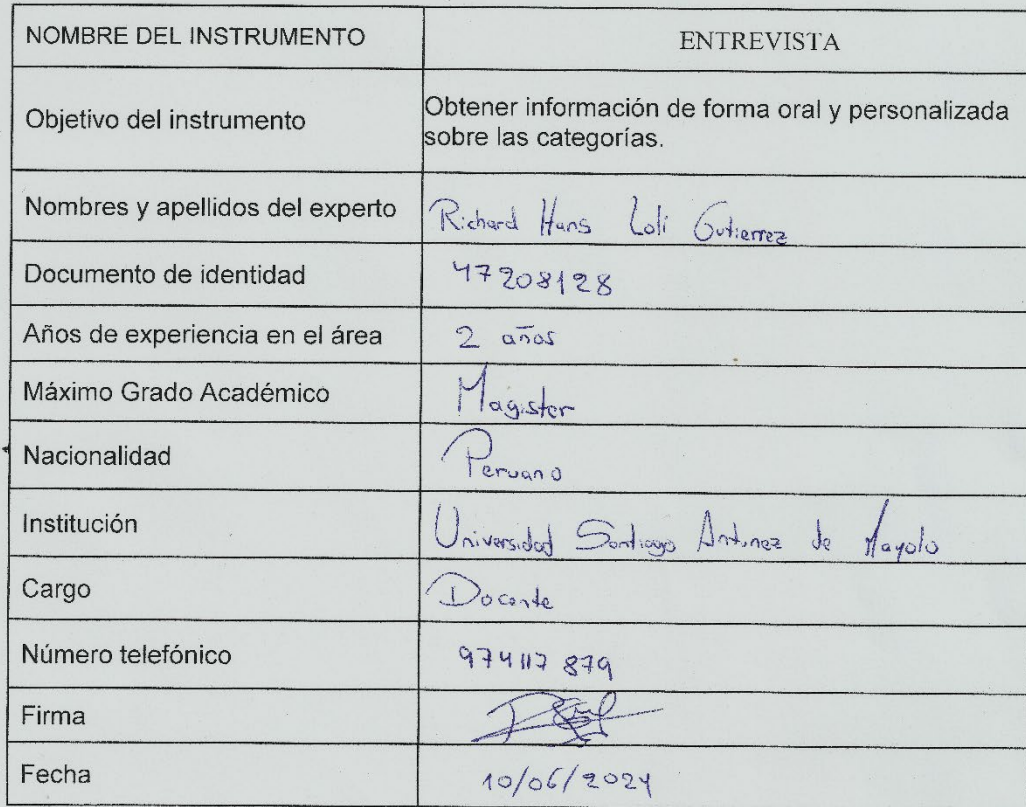 NOMBRE DEL INSTRUMENTO ENTREVISTA
Objetivo del instrumento Obtener información de forma oral y personalizada
sobre las categorías.
Nombres y apellidos del experto Richard Hans Loli Gutierrez
Documento de identidad 47208128
Años de experiencia en el área 2 años
Máximo Grado Académico Magister
Nacionalidad Peruano
Institución Universidad Santiago Antunez de Mayolo
Cargo Docente
Número telefónico 974117879
Firma
Fecha 10/06/2024